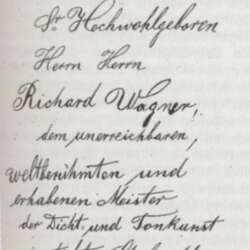 Sr Hochwohlgeboren
Herrn Herrn
Richard Wagner,
dem unerreichbaren,
weltberühmten und
erhabenen Meister
der Dicht- und Tonkunst